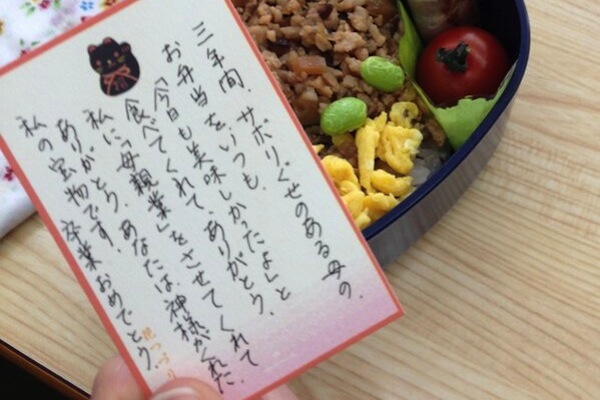 三年間、サボりぐせのある母の、
お弁当をいつも、
「今日も美味しかったよ」と
食べてくれて、ありがとう。
私に「母親業」をさせてくれて、
ありがとう。あなたは神様がくれた、
私の宝物です。卒業おめでとう。